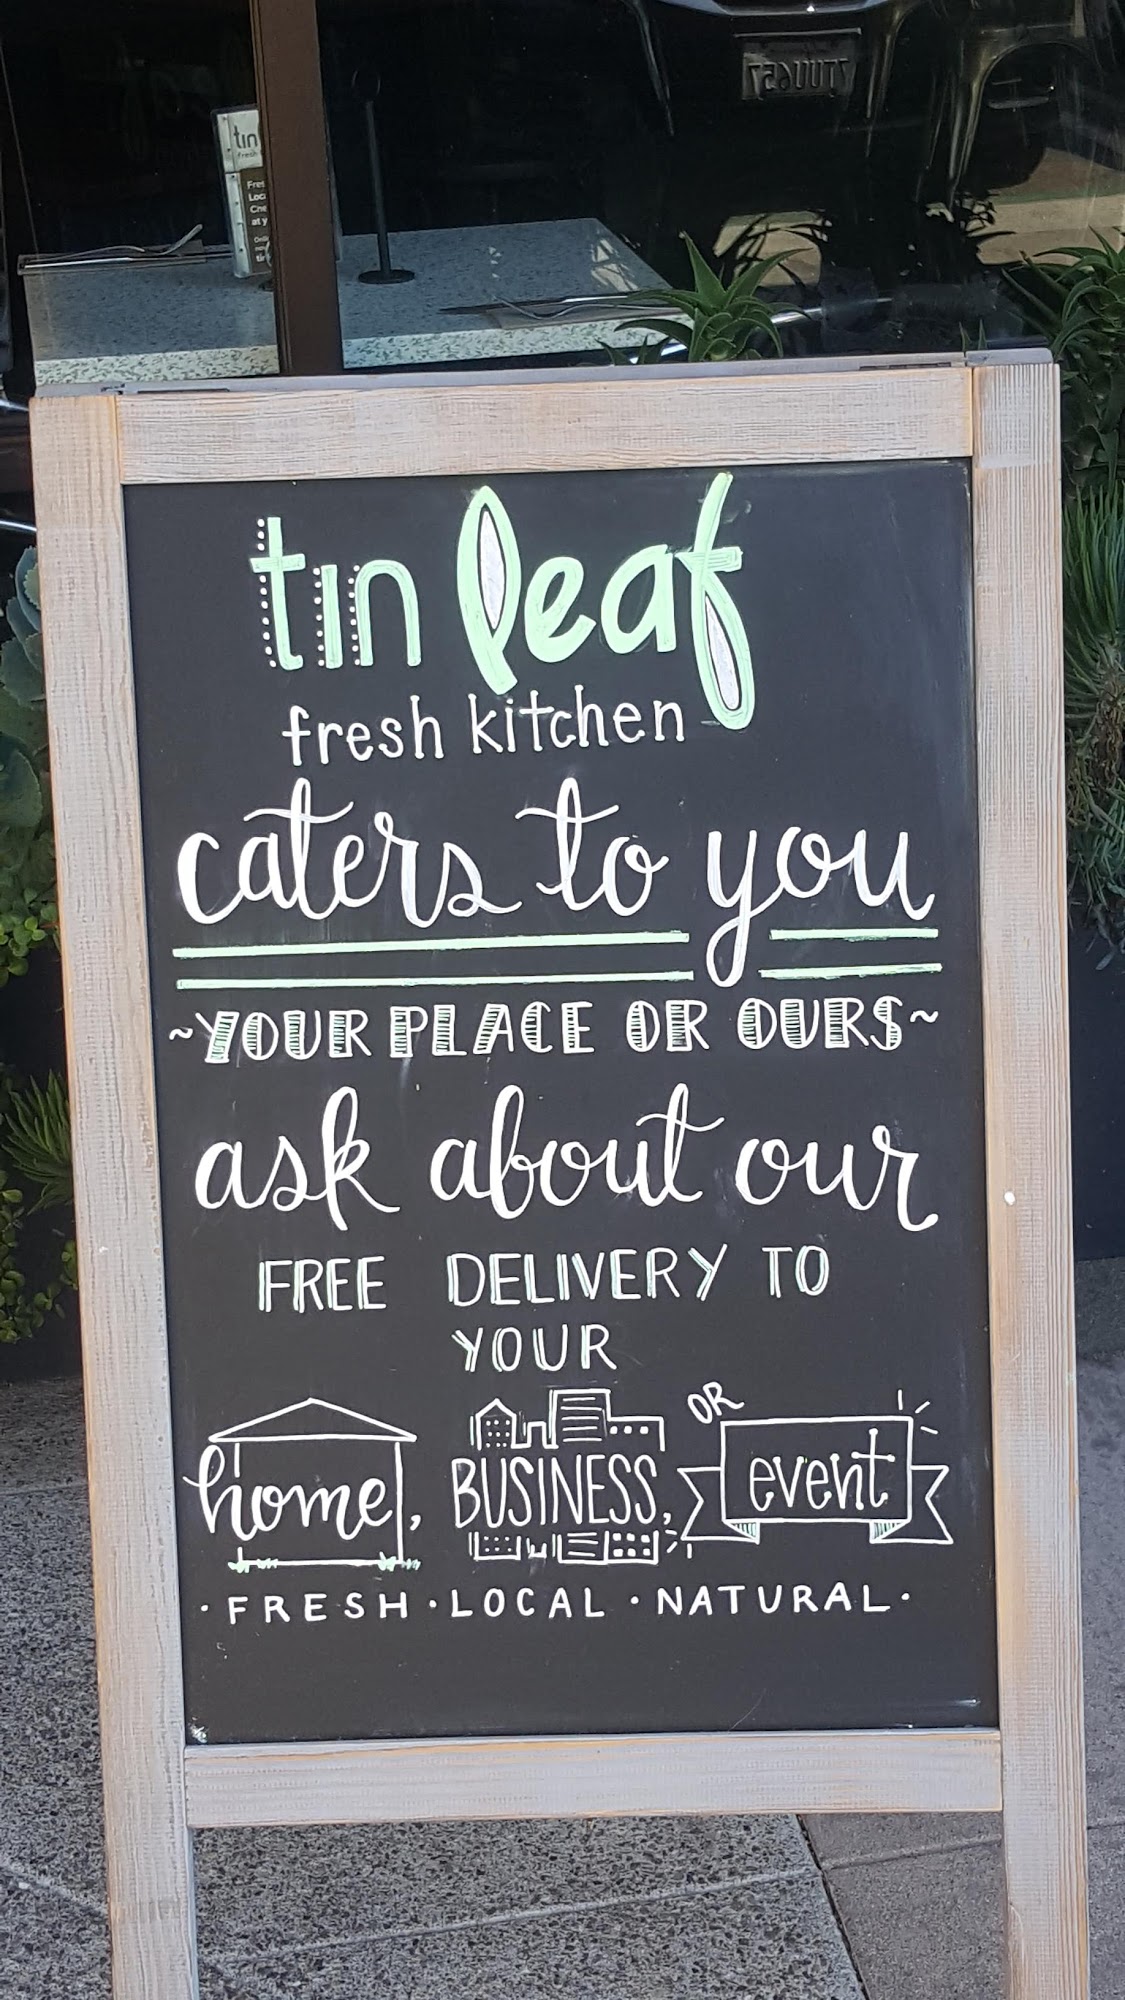 tin
fresh
tin leaf
fresh kitchen
caters to you
~YOUR PLACE OR OURS~
ask about our
FREE DELIVERY TO
YOUR
home, BUSINESS, OR event
· FRESH · LOCAL · NATURAL ·